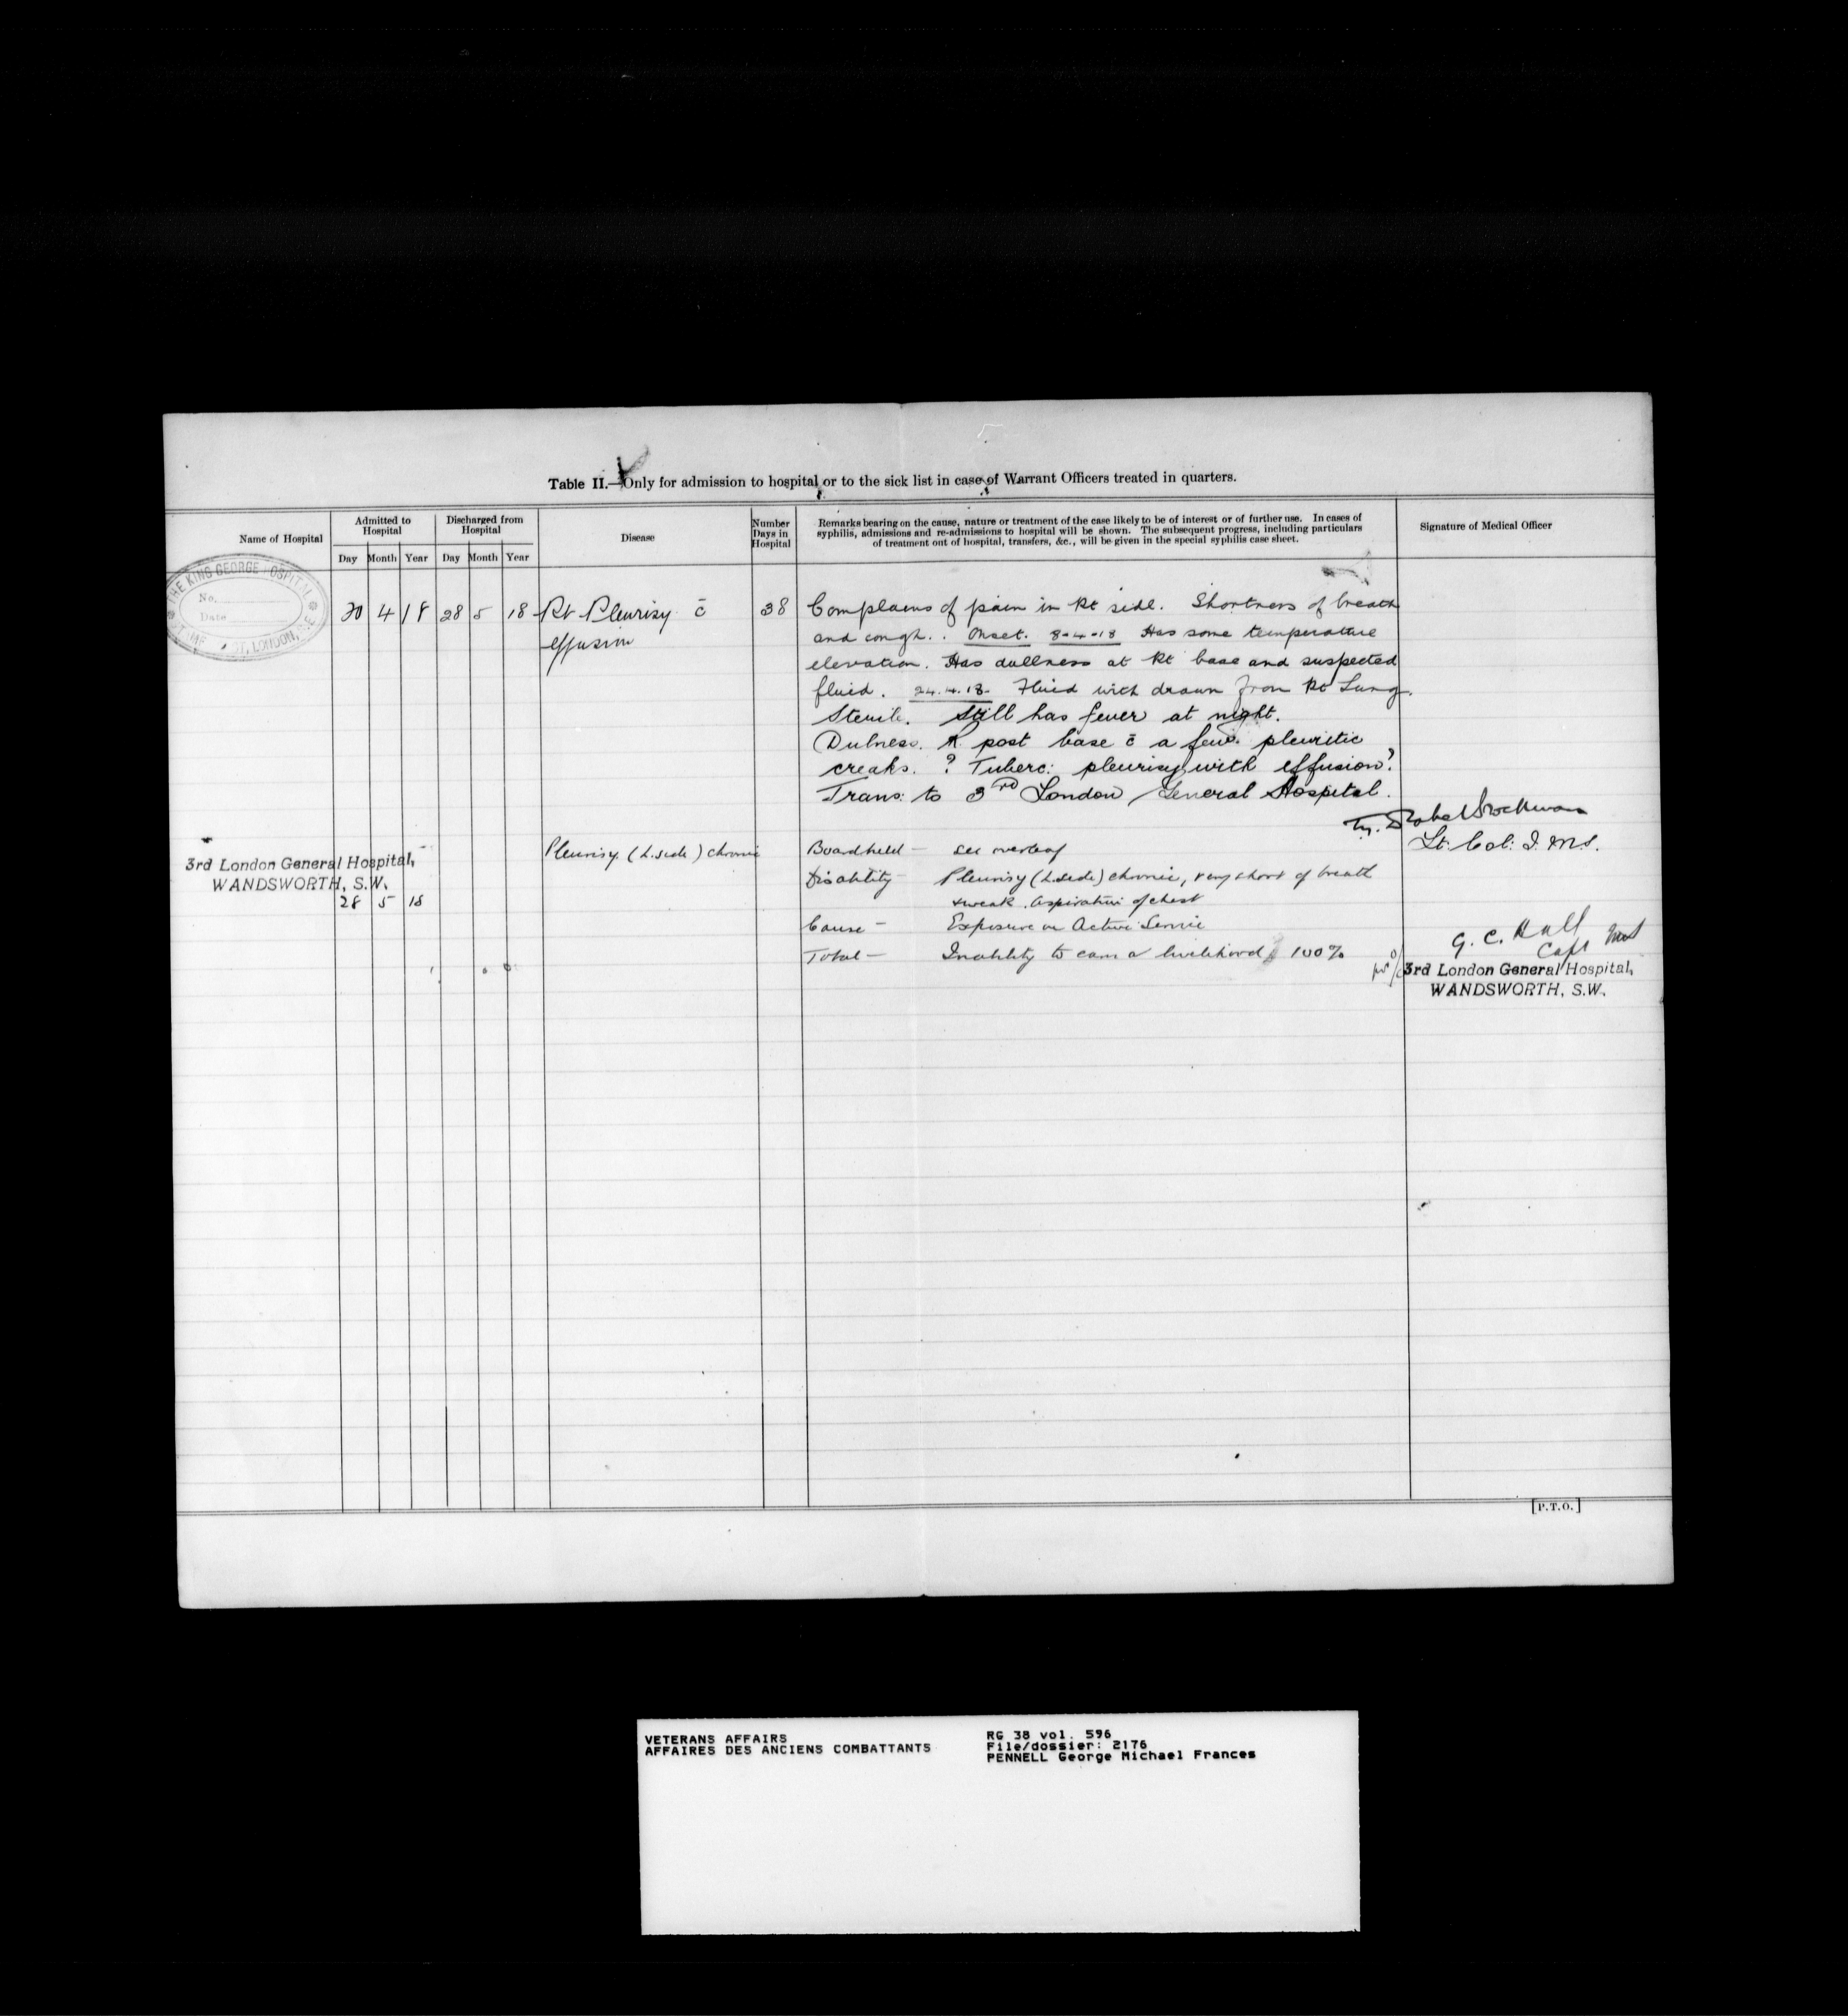 Table II.—Only for admission to hospital or to the sick list in case of Warrant Officers treated in quarters.
Name of Hospital
Admitted to Hospital
Discharged from Hospital
Day Month Year Day Month Year
Disease
Number Days in Hospital
Remarks bearing on the cause, nature or treatment of the case likely to be of interest or of further use. In cases of
syphilis, admissions and re-admissions to hospital will be shown. The subsequent progress, including particulars
of treatment out of hospital, transfers, &c., will be given in the special syphilis case sheet.
Signature of Medical Officer
THE KING GEORGE HOSPITAL
No.
Date
ST, LONDON, S.E.
20 4 18 28 5 18 Rt Pleurisy c̄ 38 Complains of pain in Rt side. Shortness of breath
effusion
and cough. . Onset. 8-4-18 Has some temperature
elevation. Has dullness at Rt base and suspected
fluid. 24.4.18. Fluid with drawn from Rt Lung.
Sterile. Still has fever at night.
Dulness. R post base c̄ a few pleuritic
creaks. ? Tuberc: pleurisy with effusion?
Trans: to 3RD London General Hospital.
Lt. Col: I.M.S.
3rd London General Hospital,
WANDSWORTH, S.W.
28 5 18
Pleurisy (L. side) chronic
Board held — see overleaf
Disability Pleurisy (L. side) chronic, very short of breath
& weak. Aspiration of chest
Cause — Exposure on Active Service
Total — Inability to earn a livelihood 100%
G. C. Hall
Capt
3rd London General Hospital,
WANDSWORTH, S.W.
[P.T.O.]
VETERANS AFFAIRS
AFFAIRES DES ANCIENS COMBATTANTS
RG 38 vol. 596
File/dossier: 2176
PENNELL George Michael Frances